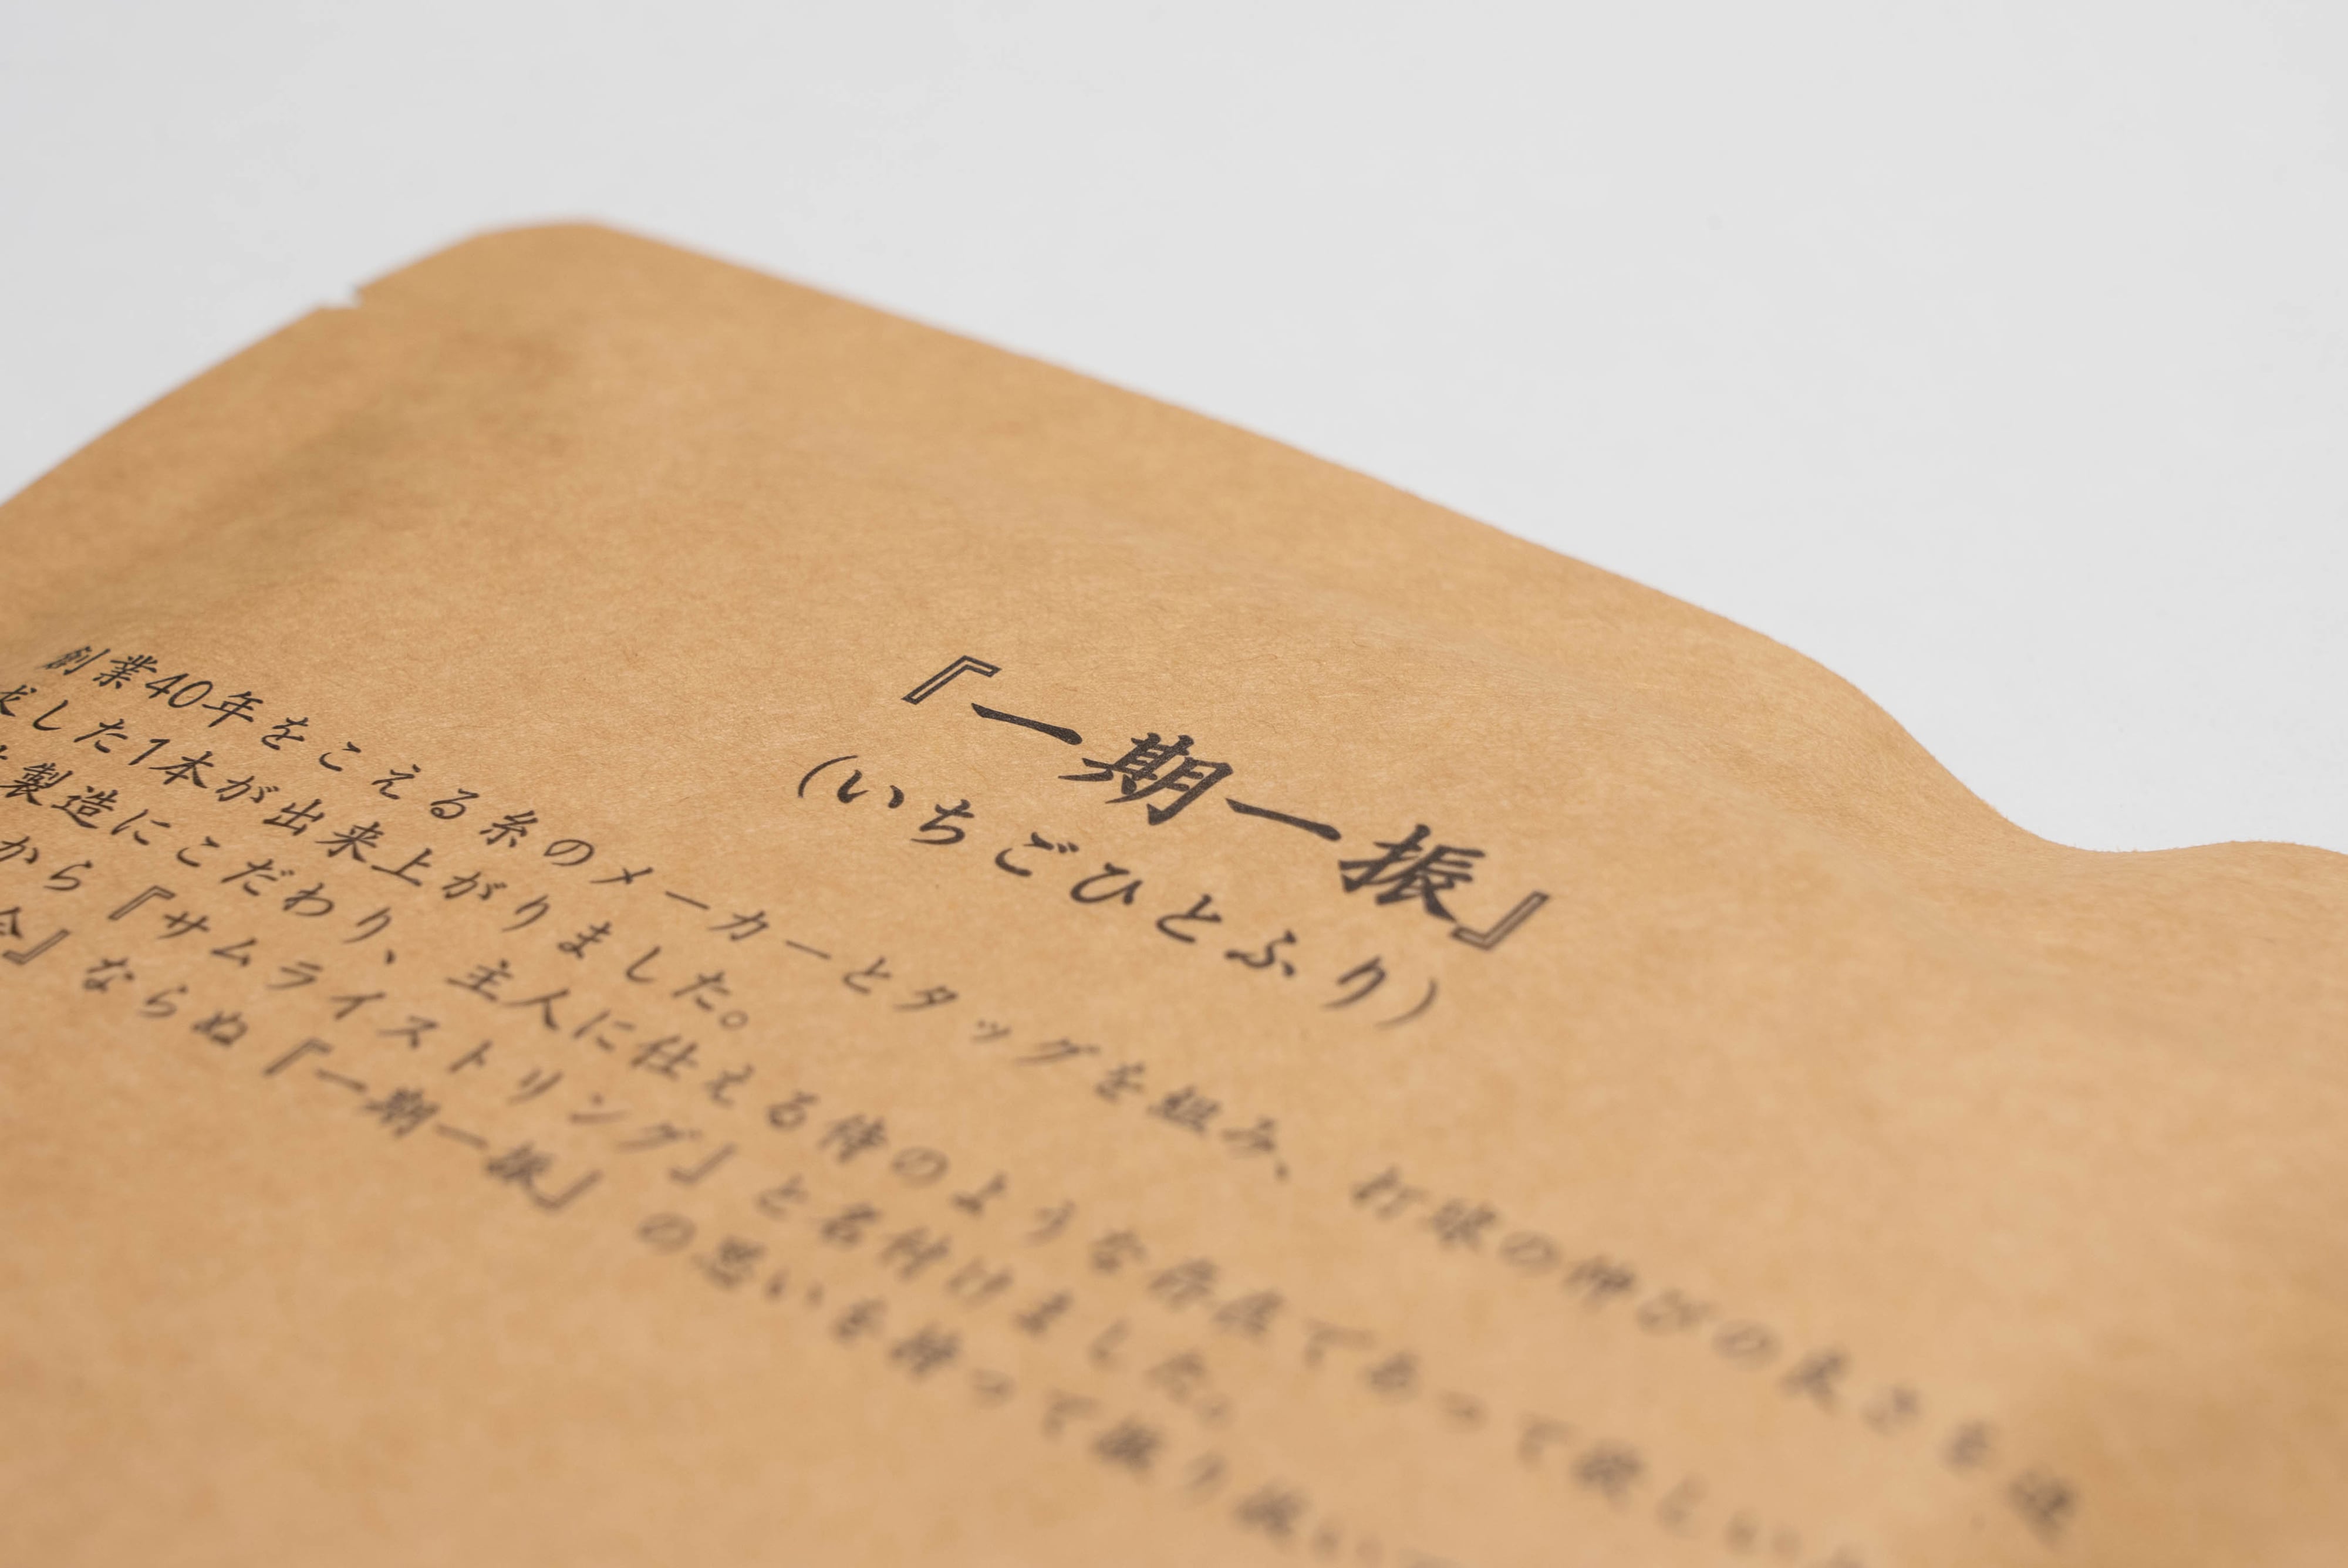 『一期一振』
(いちごひとふり)
創業40年をこえる糸のメーカーとタッグを組み、打球の伸びの良さを追
求した1本が出来上がりました。
製造にこだわり、主人に仕える侍のような存在であって欲しい
から『サムライストリング』と名付けました。
会』ならぬ『一期一振』の思いを持って振り抜い